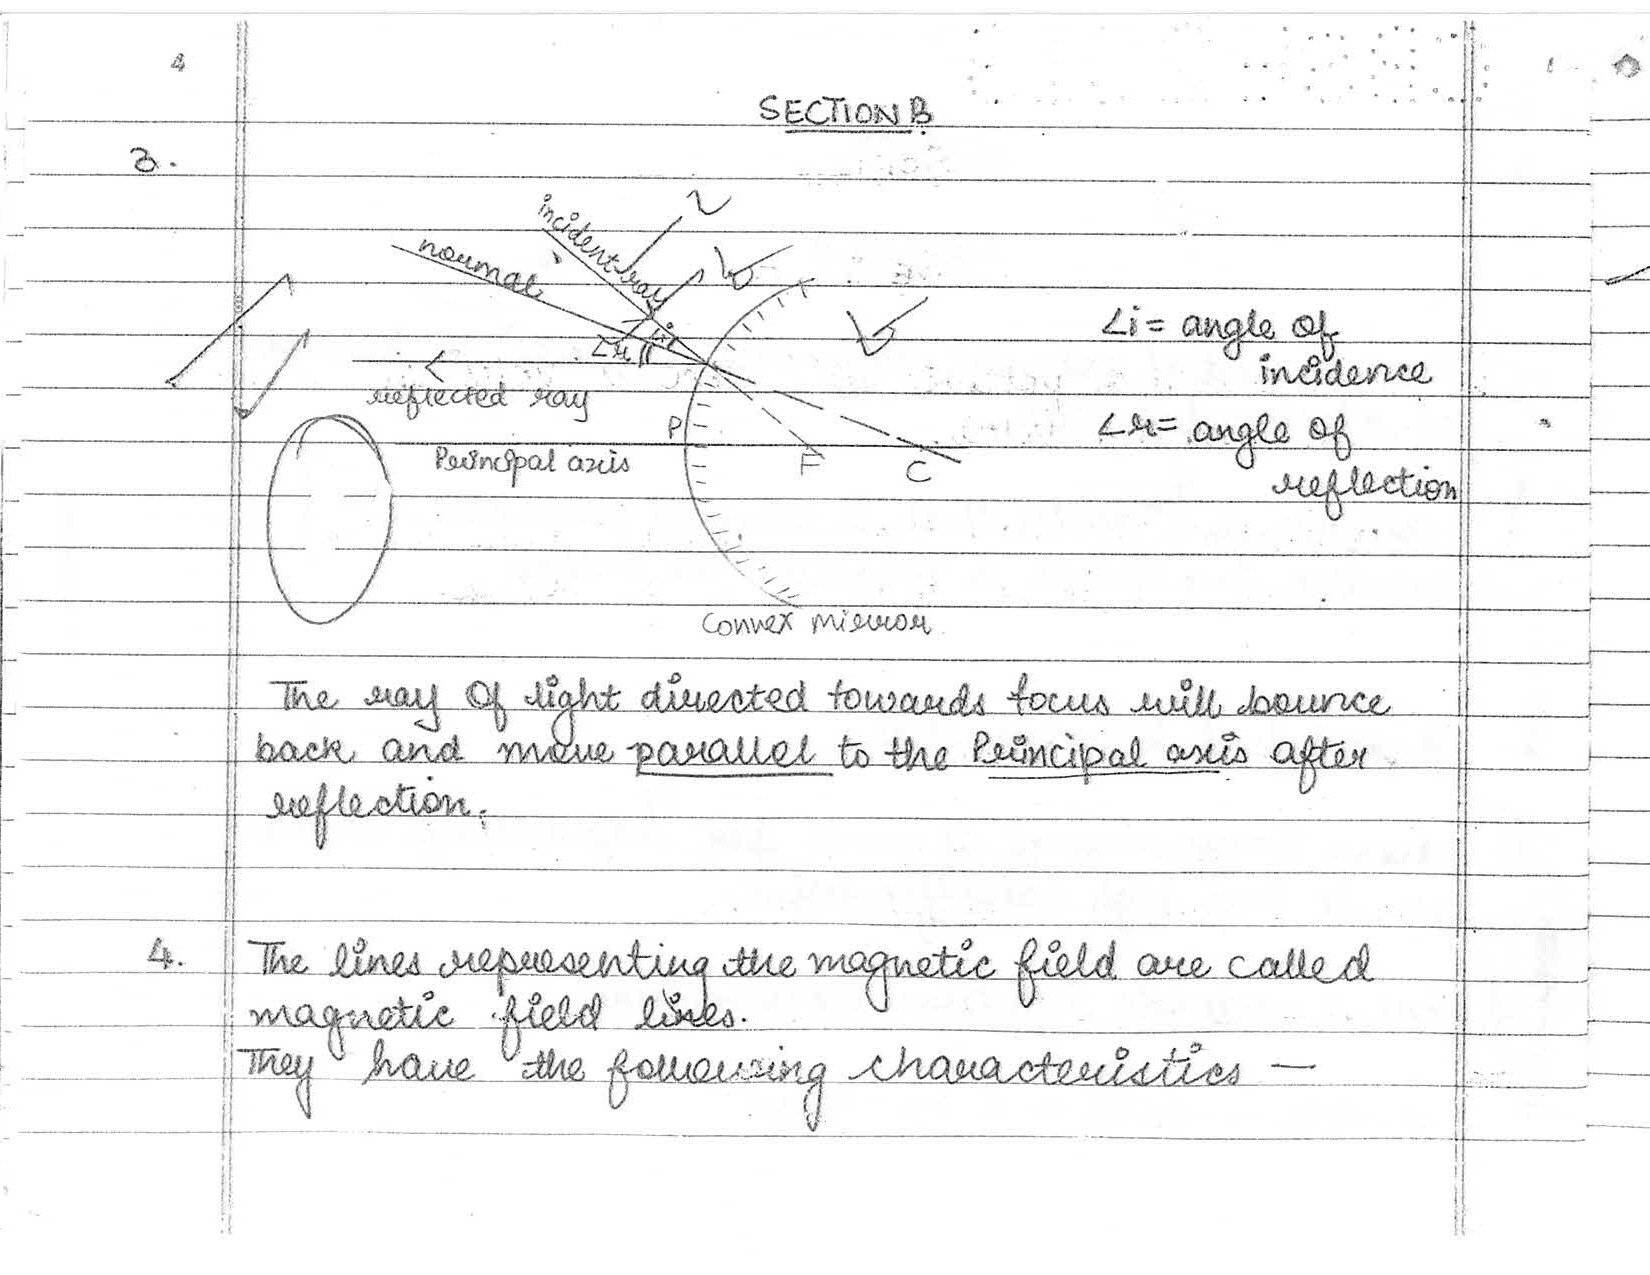 4
SECTION B
3.
incident ray
normal
∠i
∠r
reflected ray
P
Principal axis
F
C
∠i = angle of
incidence
∠r = angle of
reflection
Convex mirror
The ray of light directed towards focus will bounce
back and move parallel to the Principal axis after
reflection.
4.
The lines representing the magnetic field are called
magnetic field lines.
They have the following characteristics —